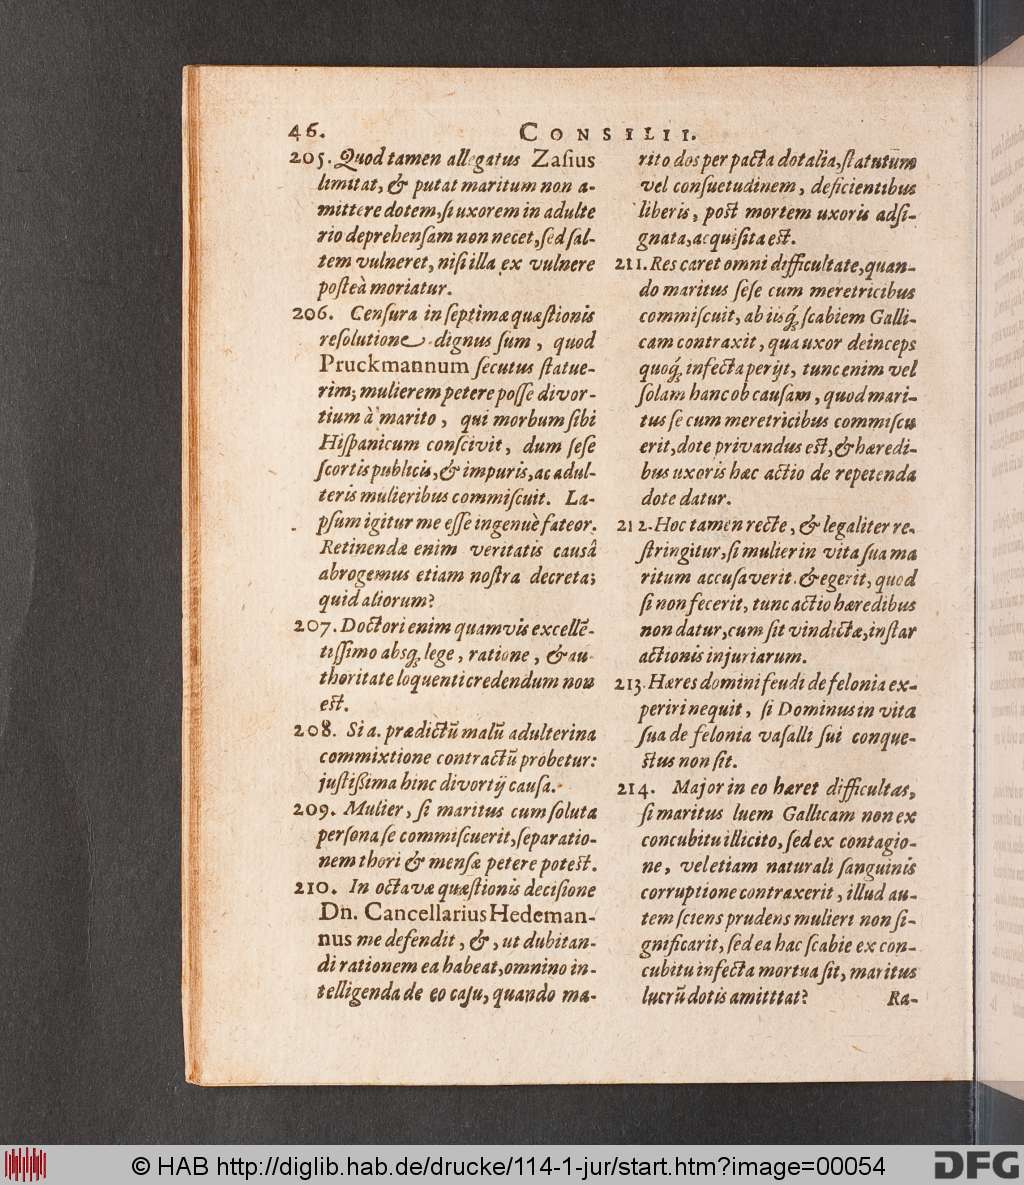 46.
CONSILII.
205. Quod tamen allegatus Zaſius
limitat, & putat maritum non a-
mittere dotem, ſi uxorem in adulte
rio deprehenſam non necet, ſed ſal-
tem vulneret, niſi illa ex vulnere
poſteà moriatur.
206. Cenſura in ſeptimæ quæſtionis
reſolutione dignus ſum, quod
Pruckmannum ſecutus ſtatue-
rim; mulierem petere poſſe divor-
tium à marito, qui morbum ſibi
Hiſpanicum conſcivit, dum ſeſe
ſcortis publicis, & impuris, ac adul-
teris mulieribus commiſcuit. La-
pſum igitur me eſſe ingenuè fateor.
Retinendæ enim veritatis causâ
abrogemus etiam noſtra decreta;
quid aliorum?
207. Doctori enim quamvis excellẽ-
tiſſimo absq́; lege, ratione, & au-
thoritate loquenti credendum non
eſt.
208. Si a. prædictũ malũ adulterina
commixtione contractũ probetur:
juſtißima hinc divortij cauſa.
209. Mulier, ſi maritus cum ſoluta
perſona ſe commiſcuerit, ſeparatio-
nem thori & menſæ petere poteſt.
210. In octavæ quæſtionis deciſione
Dn. Cancellarius Hedeman-
nus me defendit, &, ut dubitan-
di rationem ea habeat, omnino in-
telligenda de eo caſu, quando ma-
rito dos per pacta dotalia, ſtatutum
vel conſuetudinem, deficientibus
liberis, poſt mortem uxoris adſi-
gnata, acquiſita eſt.
211. Res caret omni difficultate, quan-
do maritus ſeſe cum meretricibus
commiſcuit, ab iisq́; ſcabiem Galli-
cam contraxit, qua uxor deinceps
quoq́; infecta perijt, tunc enim vel
ſolam hanc ob cauſam, quod mari-
tus ſe cum meretricibus commiſcu
erit, dote privandus eſt, & hæredi-
bus uxoris hæc actio de repetenda
dote datur.
212. Hoc tamen recte, & legaliter re-
ſtringitur, ſi mulier in vita ſua ma
ritum accuſaverit. & egerit, quod
ſi non fecerit, tunc actio hæredibus
non datur, cum ſit vindictæ, inſtar
actionis injuriarum.
213. Hæres domini feudi de felonia ex-
periri nequit, ſi Dominus in vita
ſua de felonia vaſalli ſui conque-
ſtus non ſit.
214. Major in eo hæret difficultas,
ſi maritus luem Gallicam non ex
concubitu illicito, ſed ex contagio-
ne, vel etiam naturali ſanguinis
corruptione contraxerit, illud au-
tem ſciens prudens mulieri non ſi-
gnificarit, ſed ea hac ſcabie ex con-
cubitu infecta mortua ſit, maritus
lucrũ dotis amitttat?
Ra-
© HAB http://diglib.hab.de/drucke/114-1-jur/start.htm?image=00054
DFG